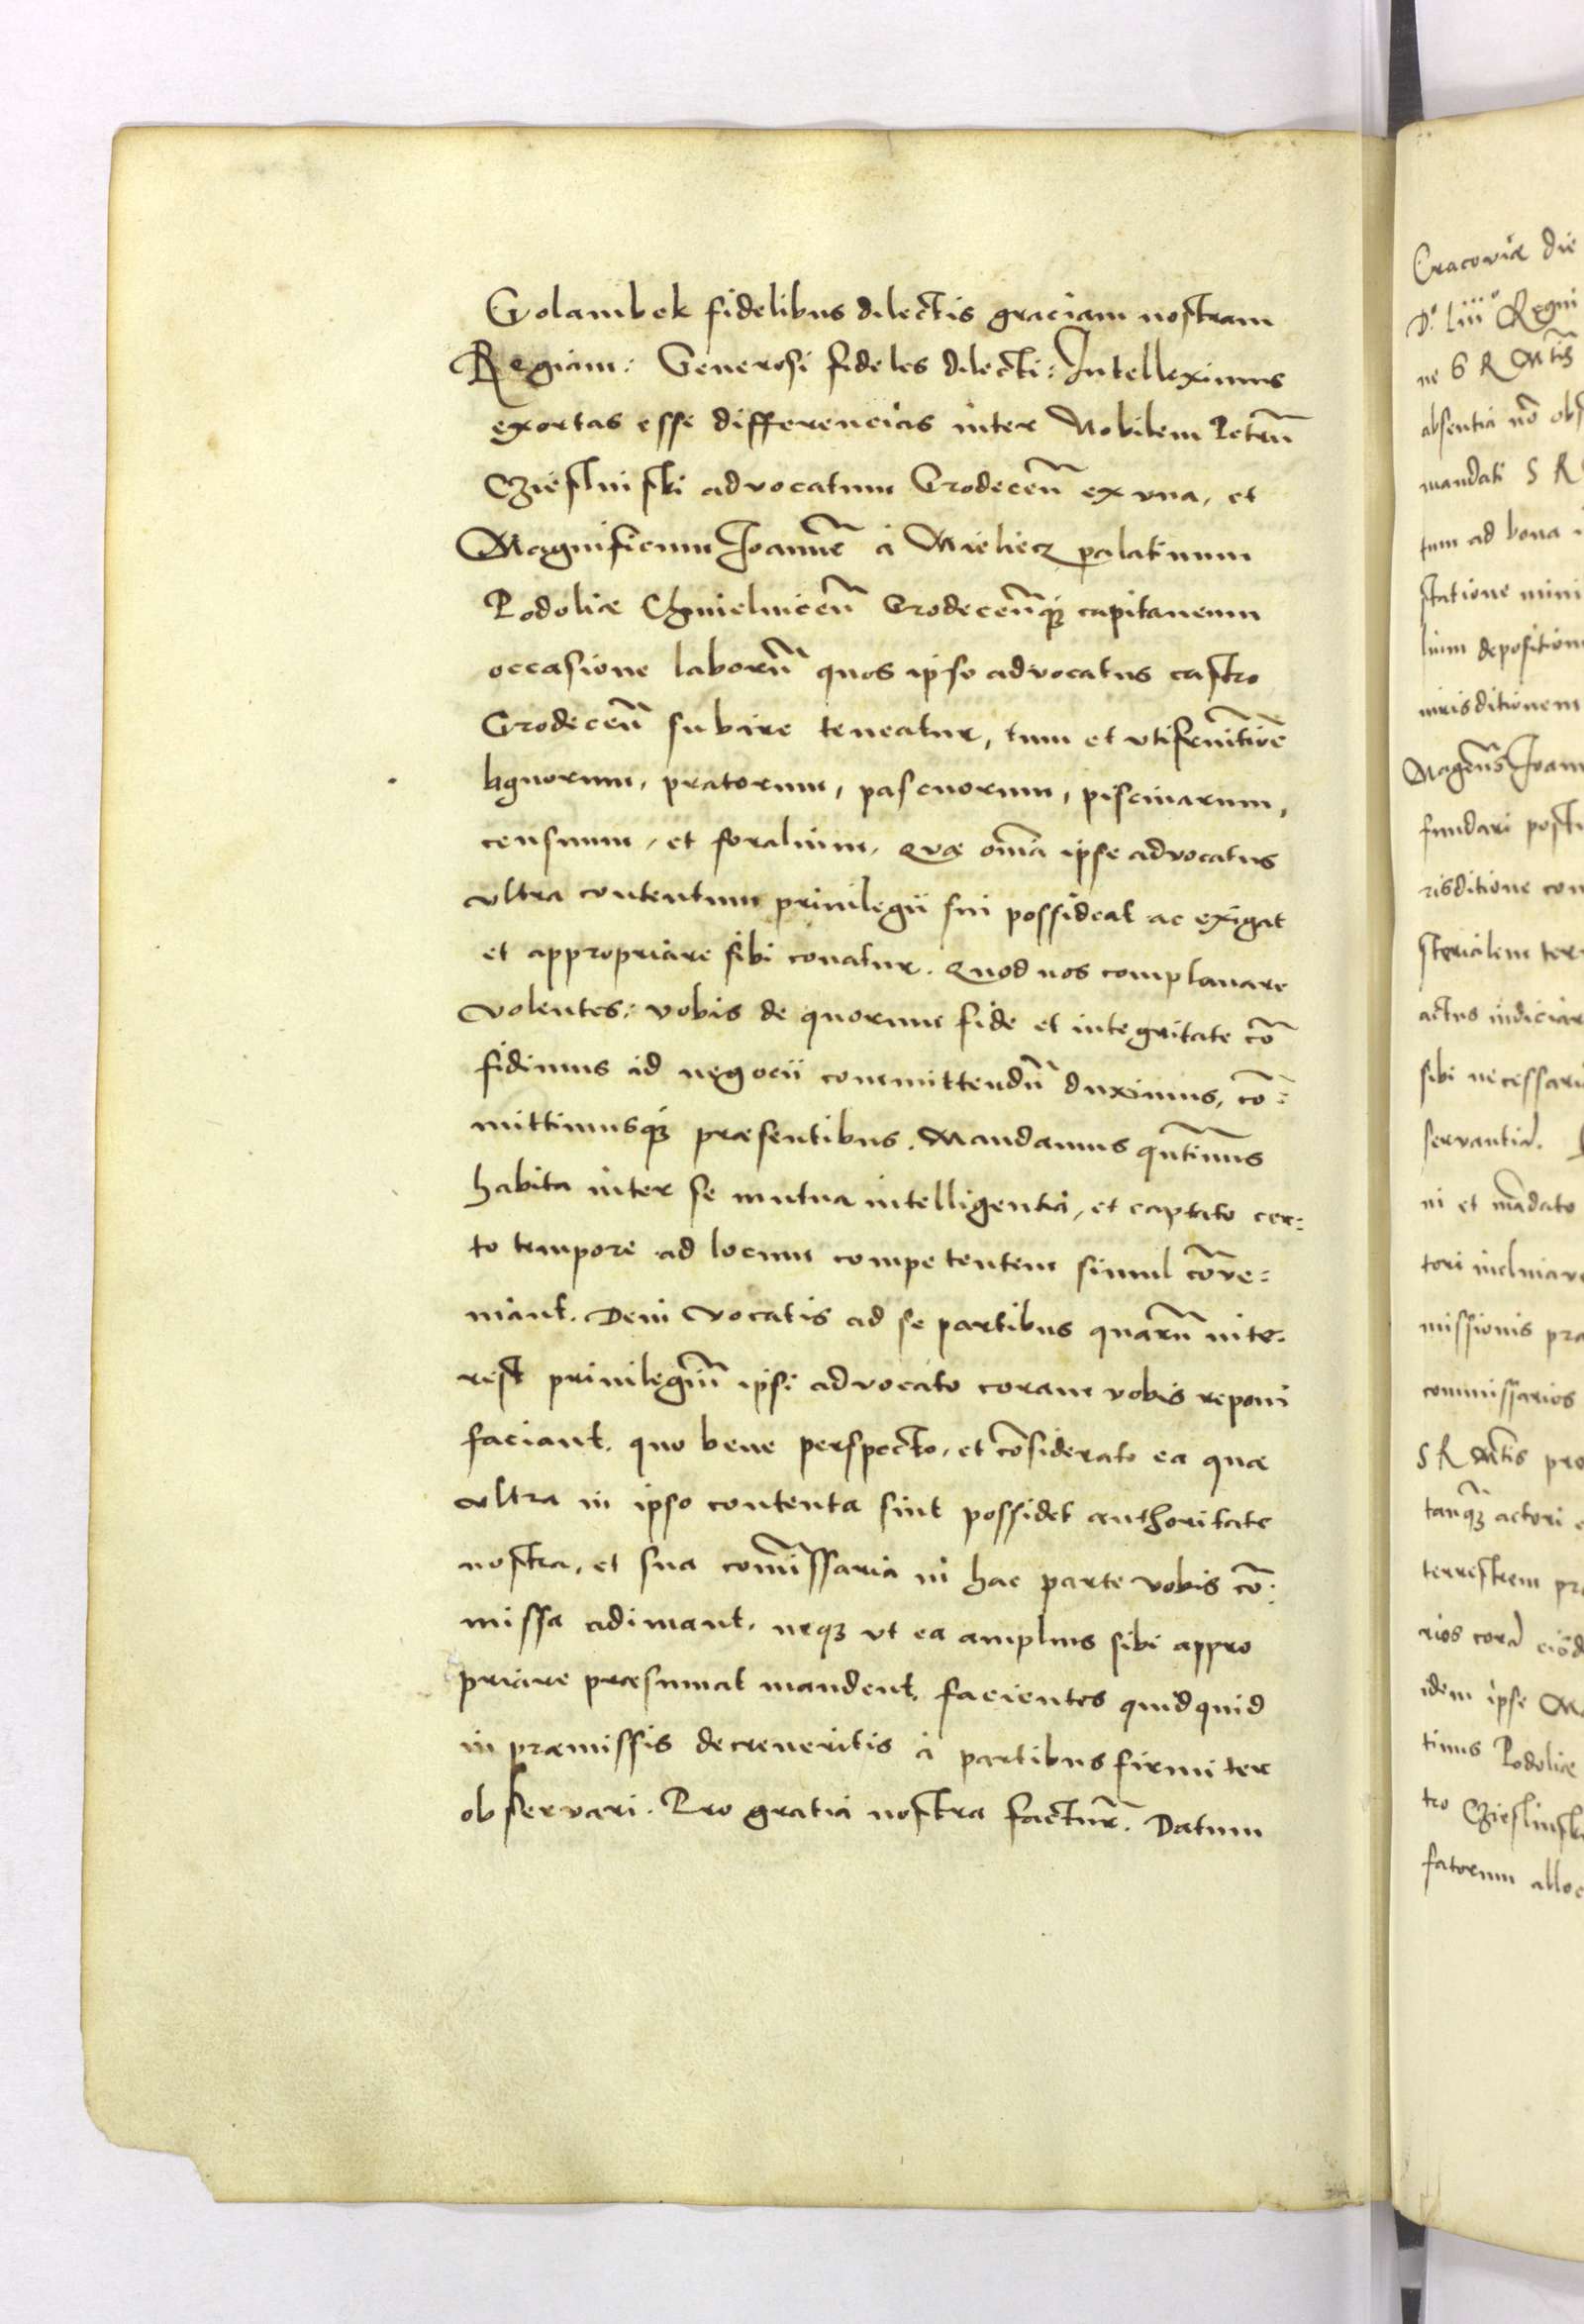 Golambek fidelibus dilectis graciam nostram
Regiam: Generosi fideles dilecti: Intelleximus
exortas esse differencias inter Nobilem Petrū
Czieslinski advocatum Grodecen̄ ex vna, et
Magnificum Joannē à Mieliecz palatinum
Podoliæ Chmielnicen̄ Grodecen̄q; capitaneum
occasione laborū quos ipse advocatus castro
Grodecen̄ subire teneatur, tum et vtifruitiōē
lignorum, pratorum, pascuorum, piscinarum,
censuum, et foralium, quæ om̄ia ipse advocatus
vltra contentum priuilegii sui possideat ac exigat
et appropriare sibi conatur. Quod nos complanare
volentes: vobis de quorum fide et integritate cō
fidimus id negocii committendū duximus, cō=
mittimusq; præsentibus. Mandamus qn̄tinus
habita inter se mutua intelligentia, et captato cer=
to tempore ad locum competentem simul cōve=
niant. Dein vocatis ad se partibus quarū inte=
rest priuilegiū ipsi advocato coram vobis reponi
faciant. quo bene perspecto, et cōsiderato ea quæ
vltra in ipso contenta sint possidet authoritate
nostra, et sua com̄issaria in hac parte vobis cō=
missa adimant, neq; vt ea amplius sibi appro
priare præsumat mandent, facientes quidquid
in præmissis decreueritis à partibus firmiter
observari. Pro gratia nostra factur̄. Datum
Cracoviæ die
D.º Liiiº Regni
absentia nō obs
mandati S R
tum ad bona
statione mini
lium deposition
iurisditionem
Magcūs Joann
fundari posti
risditione con
sterialem ter
actus iudiciar
sibi necessari
servantia.
ni et mādato
tori inclinav
missionis pra
commissarios
S R Mtis pro
tanq̄ actori
terrestrem pr
rios corā eisd
idem ipse M
tinus Podoliæ
tro Czieslinsk
fatorum alloc